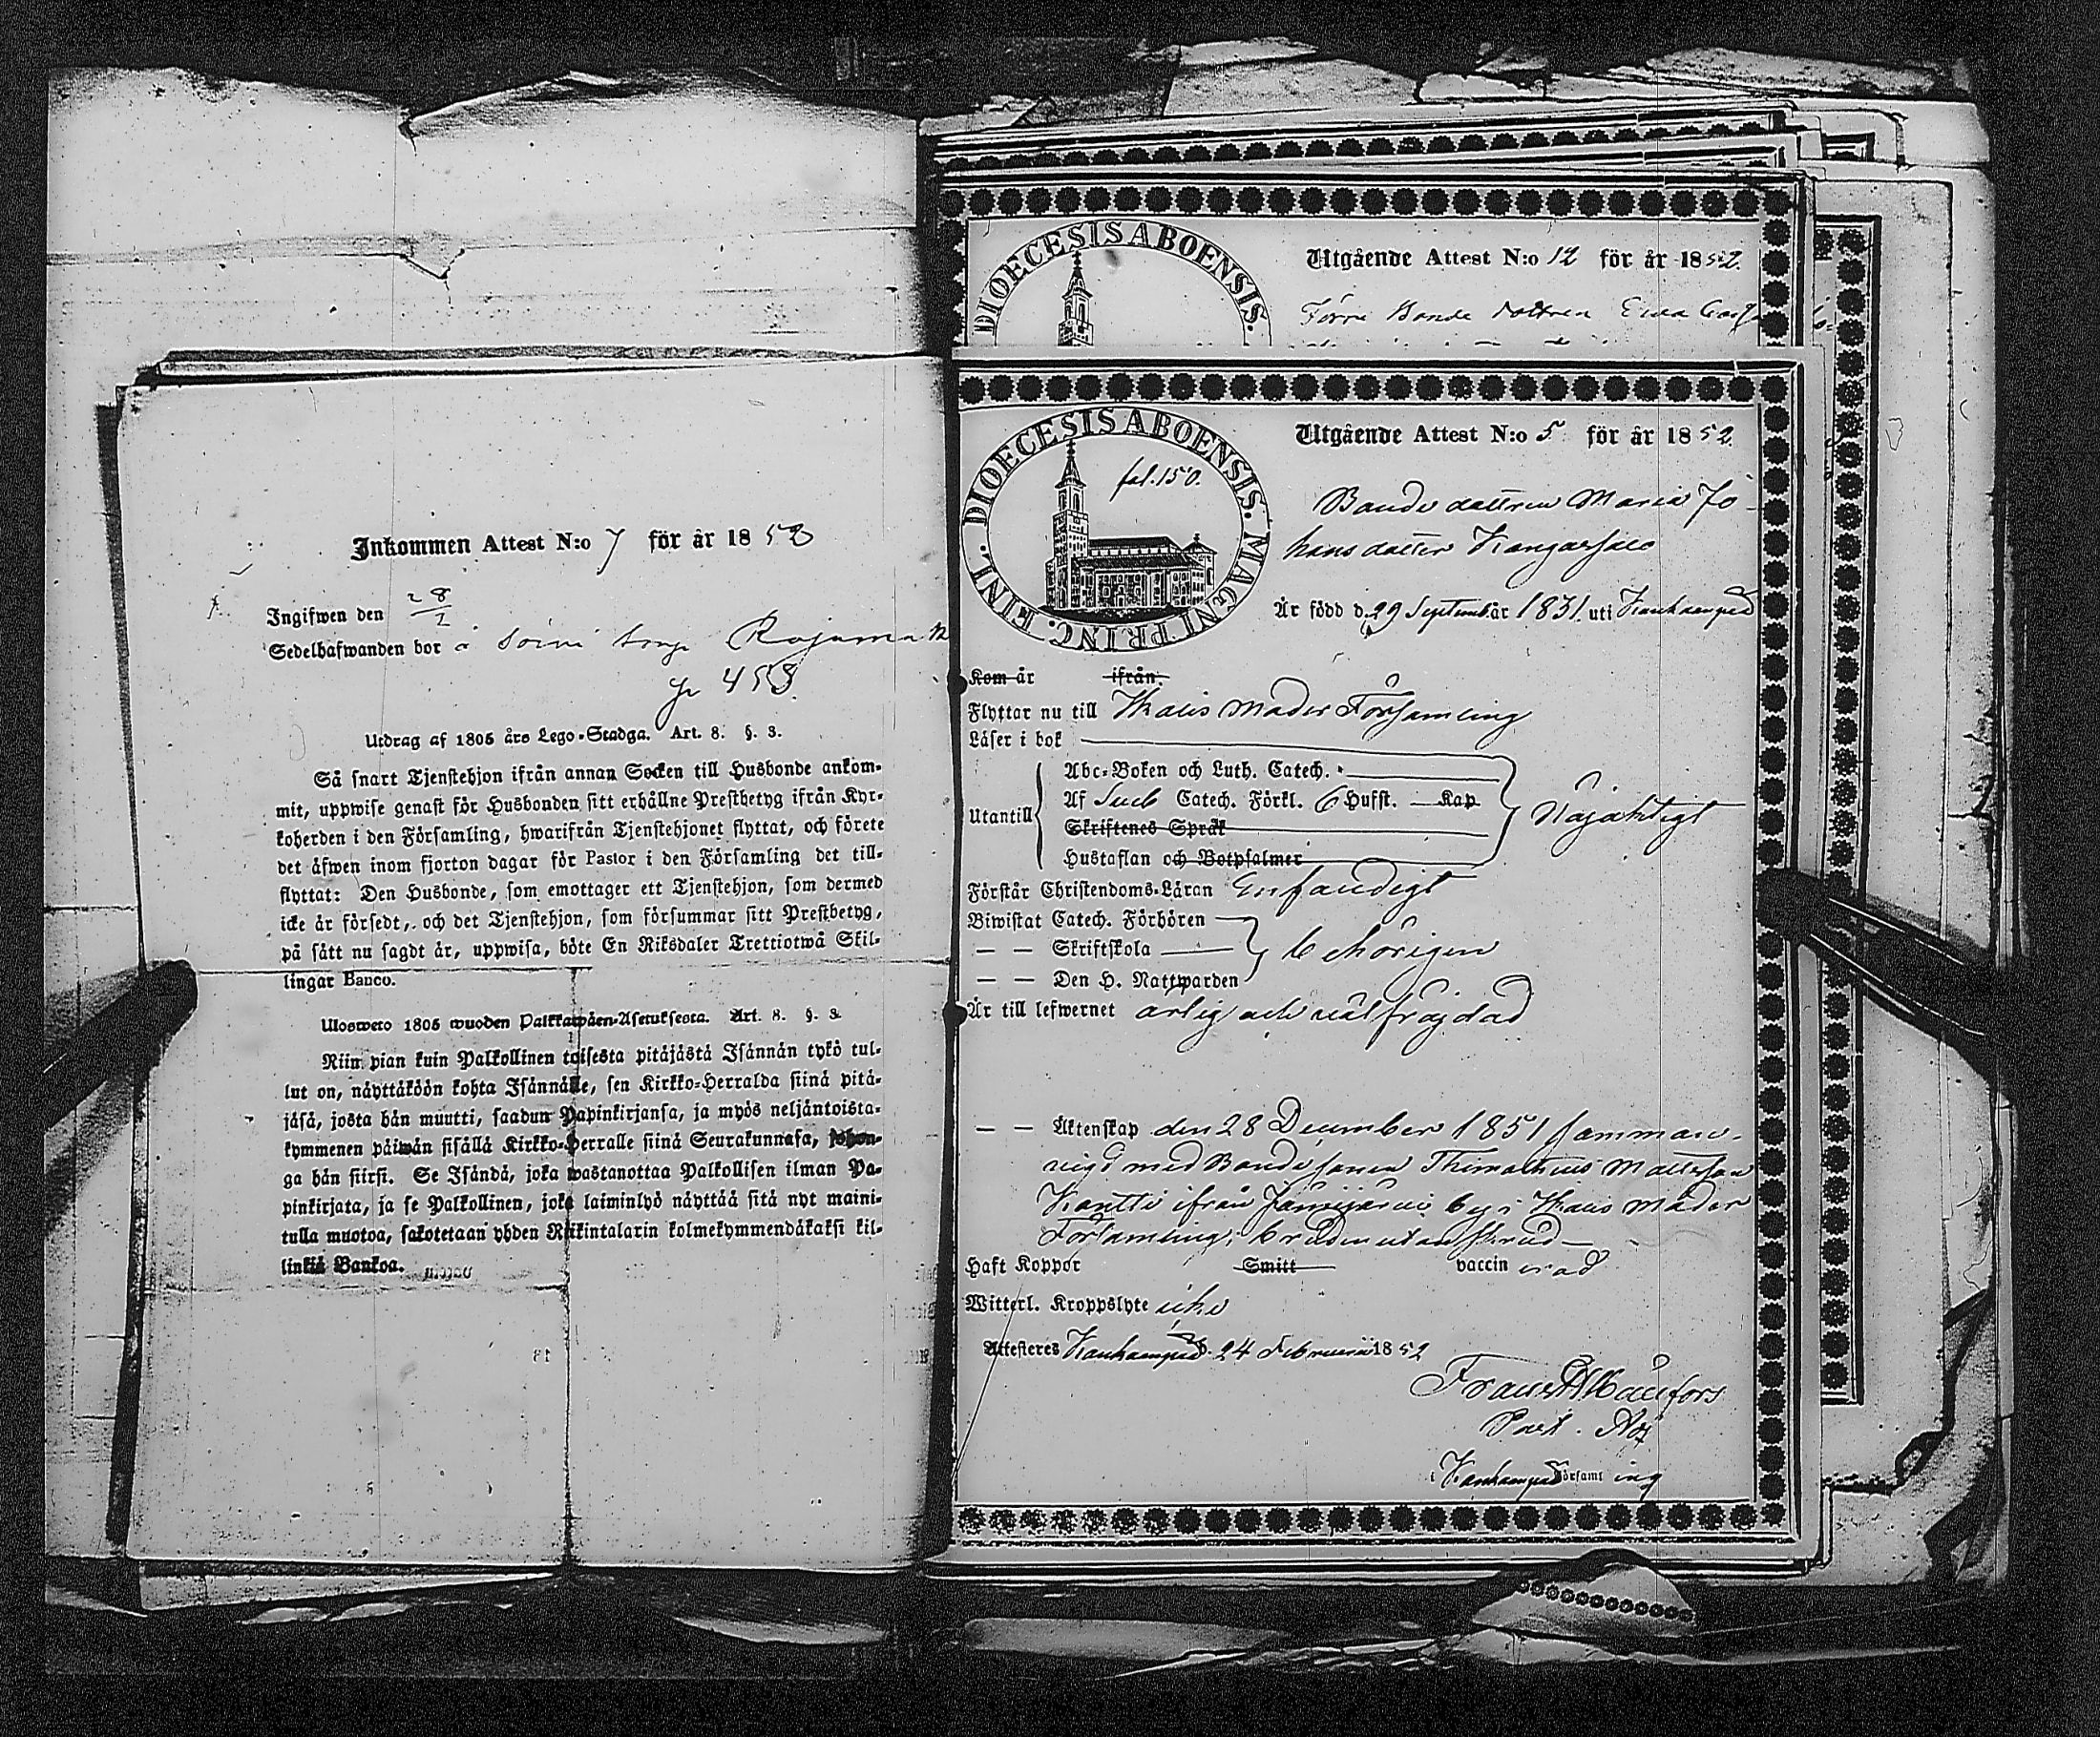 Inkommen Attest N:o 7 för år 1852
Ingifwen den 28/2
Sedelhafwanden bor å
458
Utdrag af 1805 års Lego-Stadga. Art. 8. §. 3.
Så snart Tjenstehjon ifrån annan Socken till Husbonde ankom-
mit, uppwise genast för Husbonden sitt erhållne Prestbetyg ifrån Kyr-
koherden i den Församling, hwarifrån Tjenstehjonet flyttat, och förete
det äfwen inom fjorton dagar för Pastor i den Församling det till-
flyttat: Den Husbonde, som emottager ett Tjenstehjon, som dermed
icke är försedt, och det Tjenstehjon, som försummar sitt Prestbetyg,
på sätt nu sagdt är, uppwisa, böte En Riksdaler Trettiotwå Skil-
lingar Banco.
Ulosweto 1805 wuoden Palkkawäen-Asetuksesta. Art. 8. §. 3.
Niin pian kuin Palkollinen toisesta pitäjästä Isännän tykö tul-
lut on, näyttäköön kohta Isännälle, sen Kirkko-Herralda siinä pitä-
jäsä, josta hän muutti, saadun Papinkirjansa, ja myös neljäntoista-
kymmenen päiwän sisällä Kirkko-Herralle siinä Seurakunnasa, johon-
ga hän siirsi. Se Isändä, joka wastanottaa Palkollisen ilman Pa-
pinkirjata, ja se Palkollinen, joka laiminlyö näyttää sitä nyt maini-
tulla muotoa, sakotetaan yhden Riikintalarin kolmekymmendäkaksi kil-
linkiä Bankoa.
DIOECESIS ABOENSIS.
Utgående Attest N:o 12 för år 1852.
Förre Bonde dottren
FINL. DIOECESIS ABOENSIS. MAGNI PRINC.
fol. 150.
Utgående Attest N:o 5 för år 1852
Bonde dottren Maria Jo-
hans dotter Kangarsalo
Är född d. 29 September år 1831. uti Kankaanpää
Kom år ifrån.
Flyttar nu till Församling
Läser i bok
Utantill
Abc-Boken och Luth. Catech.
Af Sveb Catech. Förkl. 6 Hufst. Kap
Skriftenes Språk
Hustaflan och Botpsalmer
Någorlunda
Förstår Christendoms-Läran Enfaldigt
Biwistat Catech. Förhören
— — Skriftskola
— — Den H. Nattwarden
behörigen
Är till lefwernet ärlig och välfräjdad
— — Äktenskap den 28 December 1851 samman-
vigd med Bonde sonen Thimotheus Mattsson
Kantti ifrån Jämijärvi by i
Församling; bruden utan skrud
Haft Koppor Smitt vaccinerad
Witterl. Kroppslyte icke
Attesteras Kankaanpää d. 24 Februari 1852
Past. Adj
i Kankaanpää Församling